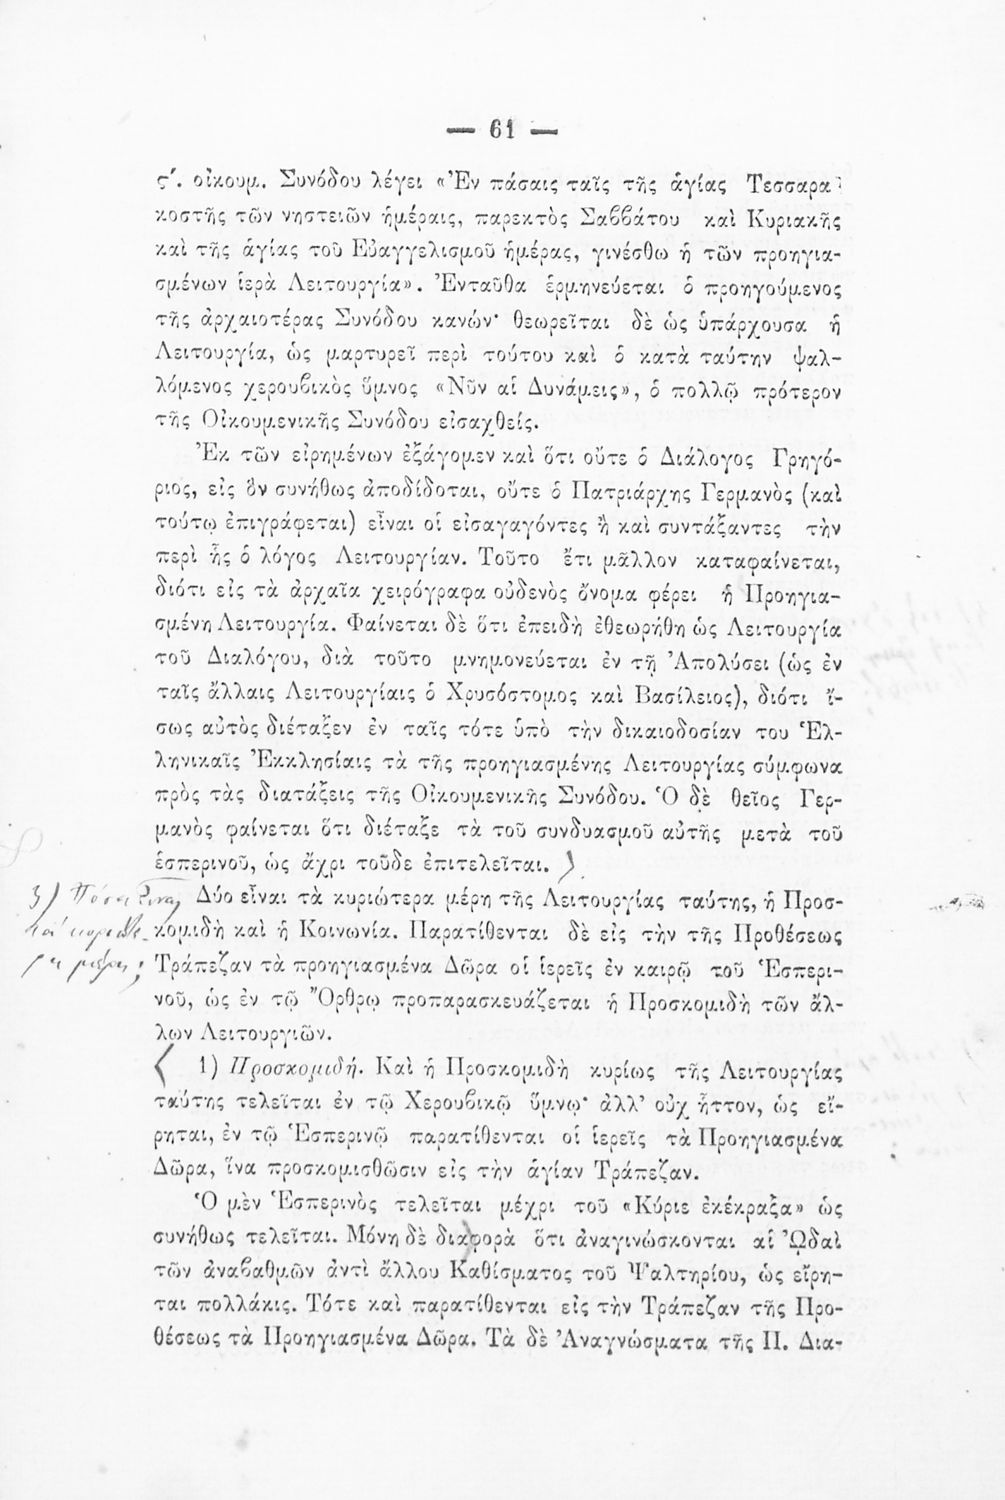 — 61 —
ϛ΄. οἰκουμ. Συνόδου λέγει «Ἐν πάσαις ταῖς τῆς ἁγίας Τεσσαρα
κοστῆς τῶν νηστειῶν ἡμέραις, παρεκτὸς Σαββάτου καὶ Κυριακῆς
καὶ τῆς ἁγίας τοῦ Εὐαγγελισμοῦ ἡμέρας, γινέσθω ἡ τῶν προηγια-
σμένων ἱερὰ Λειτουργία». Ἐνταῦθα ἑρμηνεύεται ὁ προηγούμενος
τῆς ἀρχαιοτέρας Συνόδου κανών· θεωρεῖται δὲ ὡς ὑπάρχουσα ἡ
Λειτουργία, ὡς μαρτυρεῖ περὶ τούτου καὶ ὁ κατὰ ταύτην ψαλ-
λόμενος χερουβικὸς ὕμνος «Νῦν αἱ Δυνάμεις», ὁ πολλῷ πρότερον
τῆς Οἰκουμενικῆς Συνόδου εἰσαχθείς.
Ἐκ τῶν εἰρημένων ἐξάγομεν καὶ ὅτι οὔτε ὁ Διάλογος Γρηγό-
ριος, εἰς ὃν συνήθως ἀποδίδοται, οὔτε ὁ Πατριάρχης Γερμανὸς (καὶ
τούτῳ ἐπιγράφεται) εἶναι οἱ εἰσαγαγόντες ἢ καὶ συντάξαντες τὴν
περὶ ἧς ὁ λόγος Λειτουργίαν. Τοῦτο ἔτι μᾶλλον καταφαίνεται,
διότι εἰς τὰ ἀρχαῖα χειρόγραφα οὐδενὸς ὄνομα φέρει ἡ Προηγια-
σμένη Λειτουργία. Φαίνεται δὲ ὅτι ἐπειδὴ ἐθεωρήθη ὡς Λειτουργία
τοῦ Διαλόγου, διὰ τοῦτο μνημονεύεται ἐν τῇ Ἀπολύσει (ὡς ἐν
ταῖς ἄλλαις Λειτουργίαις ὁ Χρυσόστομος καὶ Βασίλειος), διότι ἴ-
σως αὐτὸς διέταξεν ἐν ταῖς τότε ὑπὸ τὴν δικαιοδοσίαν του Ἑλ-
ληνικαῖς Ἐκκλησίαις τὰ τῆς προηγιασμένης Λειτουργίας σύμφωνα
πρὸς τὰς διατάξεις τῆς Οἰκουμενικῆς Συνόδου. Ὁ δὲ θεῖος Γερ-
μανὸς φαίνεται ὅτι διέταξε τὰ τοῦ συνδυασμοῦ αὐτῆς μετὰ τοῦ
ἑσπερινοῦ, ὡς ἄχρι τοῦδε ἐπιτελεῖται.
3) Πόσα
Δύο εἶναι τὰ κυριώτερα μέρη τῆς Λειτουργίας ταύτης, ἡ Προσ-
κομιδὴ καὶ ἡ Κοινωνία. Παρατίθενται δὲ εἰς τὴν τῆς Προθέσεως
Τράπεζαν τὰ προηγιασμένα Δῶρα οἱ ἱερεῖς ἐν καιρῷ τοῦ Ἑσπερι-
νοῦ, ὡς ἐν τῷ Ὄρθρῳ προπαρασκευάζεται ἡ Προσκομιδὴ τῶν ἄλ-
λων Λειτουργιῶν.
1) Προσκομιδή. Καὶ ἡ Προσκομιδὴ κυρίως τῆς Λειτουργίας
ταύτης τελεῖται ἐν τῷ Χερουβικῷ ὕμνῳ· ἀλλ' οὐχ ἧττον, ὡς εἴ-
ρηται, ἐν τῷ Ἑσπερινῷ παρατίθενται οἱ ἱερεῖς τὰ Προηγιασμένα
Δῶρα, ἵνα προσκομισθῶσιν εἰς τὴν ἁγίαν Τράπεζαν.
Ὁ μὲν Ἑσπερινὸς τελεῖται μέχρι τοῦ «Κύριε ἐκέκραξα» ὡς
συνήθως τελεῖται. Μόνη δὲ διαφορὰ ὅτι ἀναγινώσκονται αἱ ᾨδαὶ
τῶν ἀναβαθμῶν ἀντὶ ἄλλου Καθίσματος τοῦ Ψαλτηρίου, ὡς εἴρη-
ται πολλάκις. Τότε καὶ παρατίθενται εἰς τὴν Τράπεζαν τῆς Προ-
θέσεως τὰ Προηγιασμένα Δῶρα. Τὰ δὲ Ἀναγνώσματα τῆς Π. Δια-